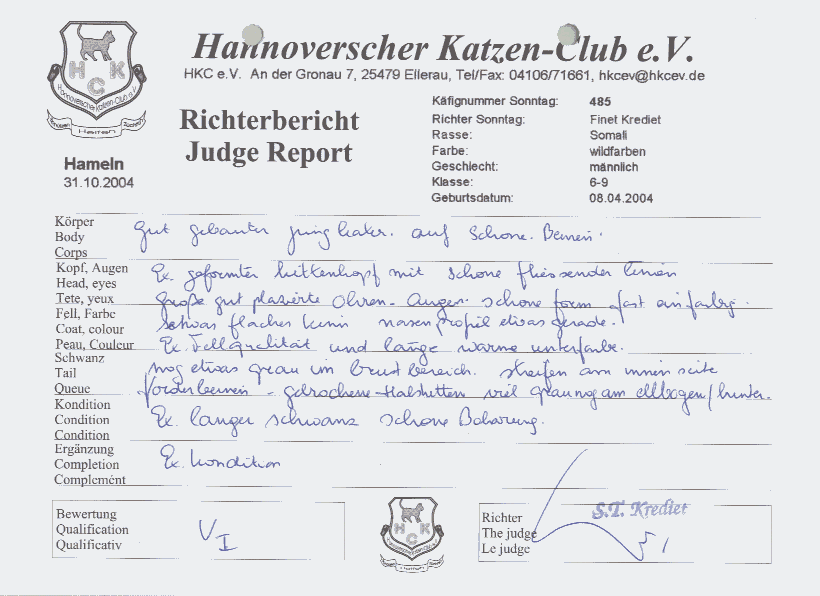 Hannoverscher Katzen-Club e.V.
HKC e.V. An der Gronau 7, 25479 Ellerau, Tel/Fax: 04106/71661, hkcev@hkcev.de
H K
C
Hannoverscher Katzen-Club e.V.
Hameln
31.10.2004
Richterbericht
Judge Report
Käfignummer Sonntag: 485
Richter Sonntag: Finet Krediet
Rasse: Somali
Farbe: wildfarben
Geschlecht: männlich
Klasse: 6-9
Geburtsdatum: 08.04.2004
Körper
Body
Corps
gut gebauter jung kater. auf schone. Beinen.
Kopf, Augen
Head, eyes
Tete, yeux
Ex. geformter mit schone fliessender linien
große gut plazierte Ohren - Augen schone form fast einfarbig.
Fell, Farbe
Coat, colour
Peau, Couleur
etwas flaches kinn nasenprofil etwas gerade.
Ex. Fellqualität und lange warme unterfarbe.
Schwanz
Tail
Queue
nog etwas grau im brust bereich. streifen am innen seite
vorderbeinen - gebrochene Halsketten viel grau nog am ellbogen/hinter.
Kondition
Condition
Condition
Ex. langer schwanz schone Beharung.
Ergänzung
Completion
Complemént
Ex. Kondition
Bewertung
Qualification
Qualificativ
V I
H K
C
Hannoverscher Katzen-Club e.V.
Richter
The judge
Le judge
S.T. Krediet